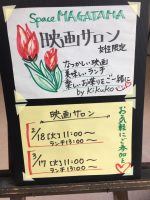 Space MAGATAMA
映画サロン
女性限定
なつかしい映画
美味しいランチ
楽しいお喋りをご一緒に
by Kikuko
映画サロン
2/18(火)11:00〜
ランチ13:00〜
3/17(火)11:00〜
ランチ13:00〜
お気軽にご参加を